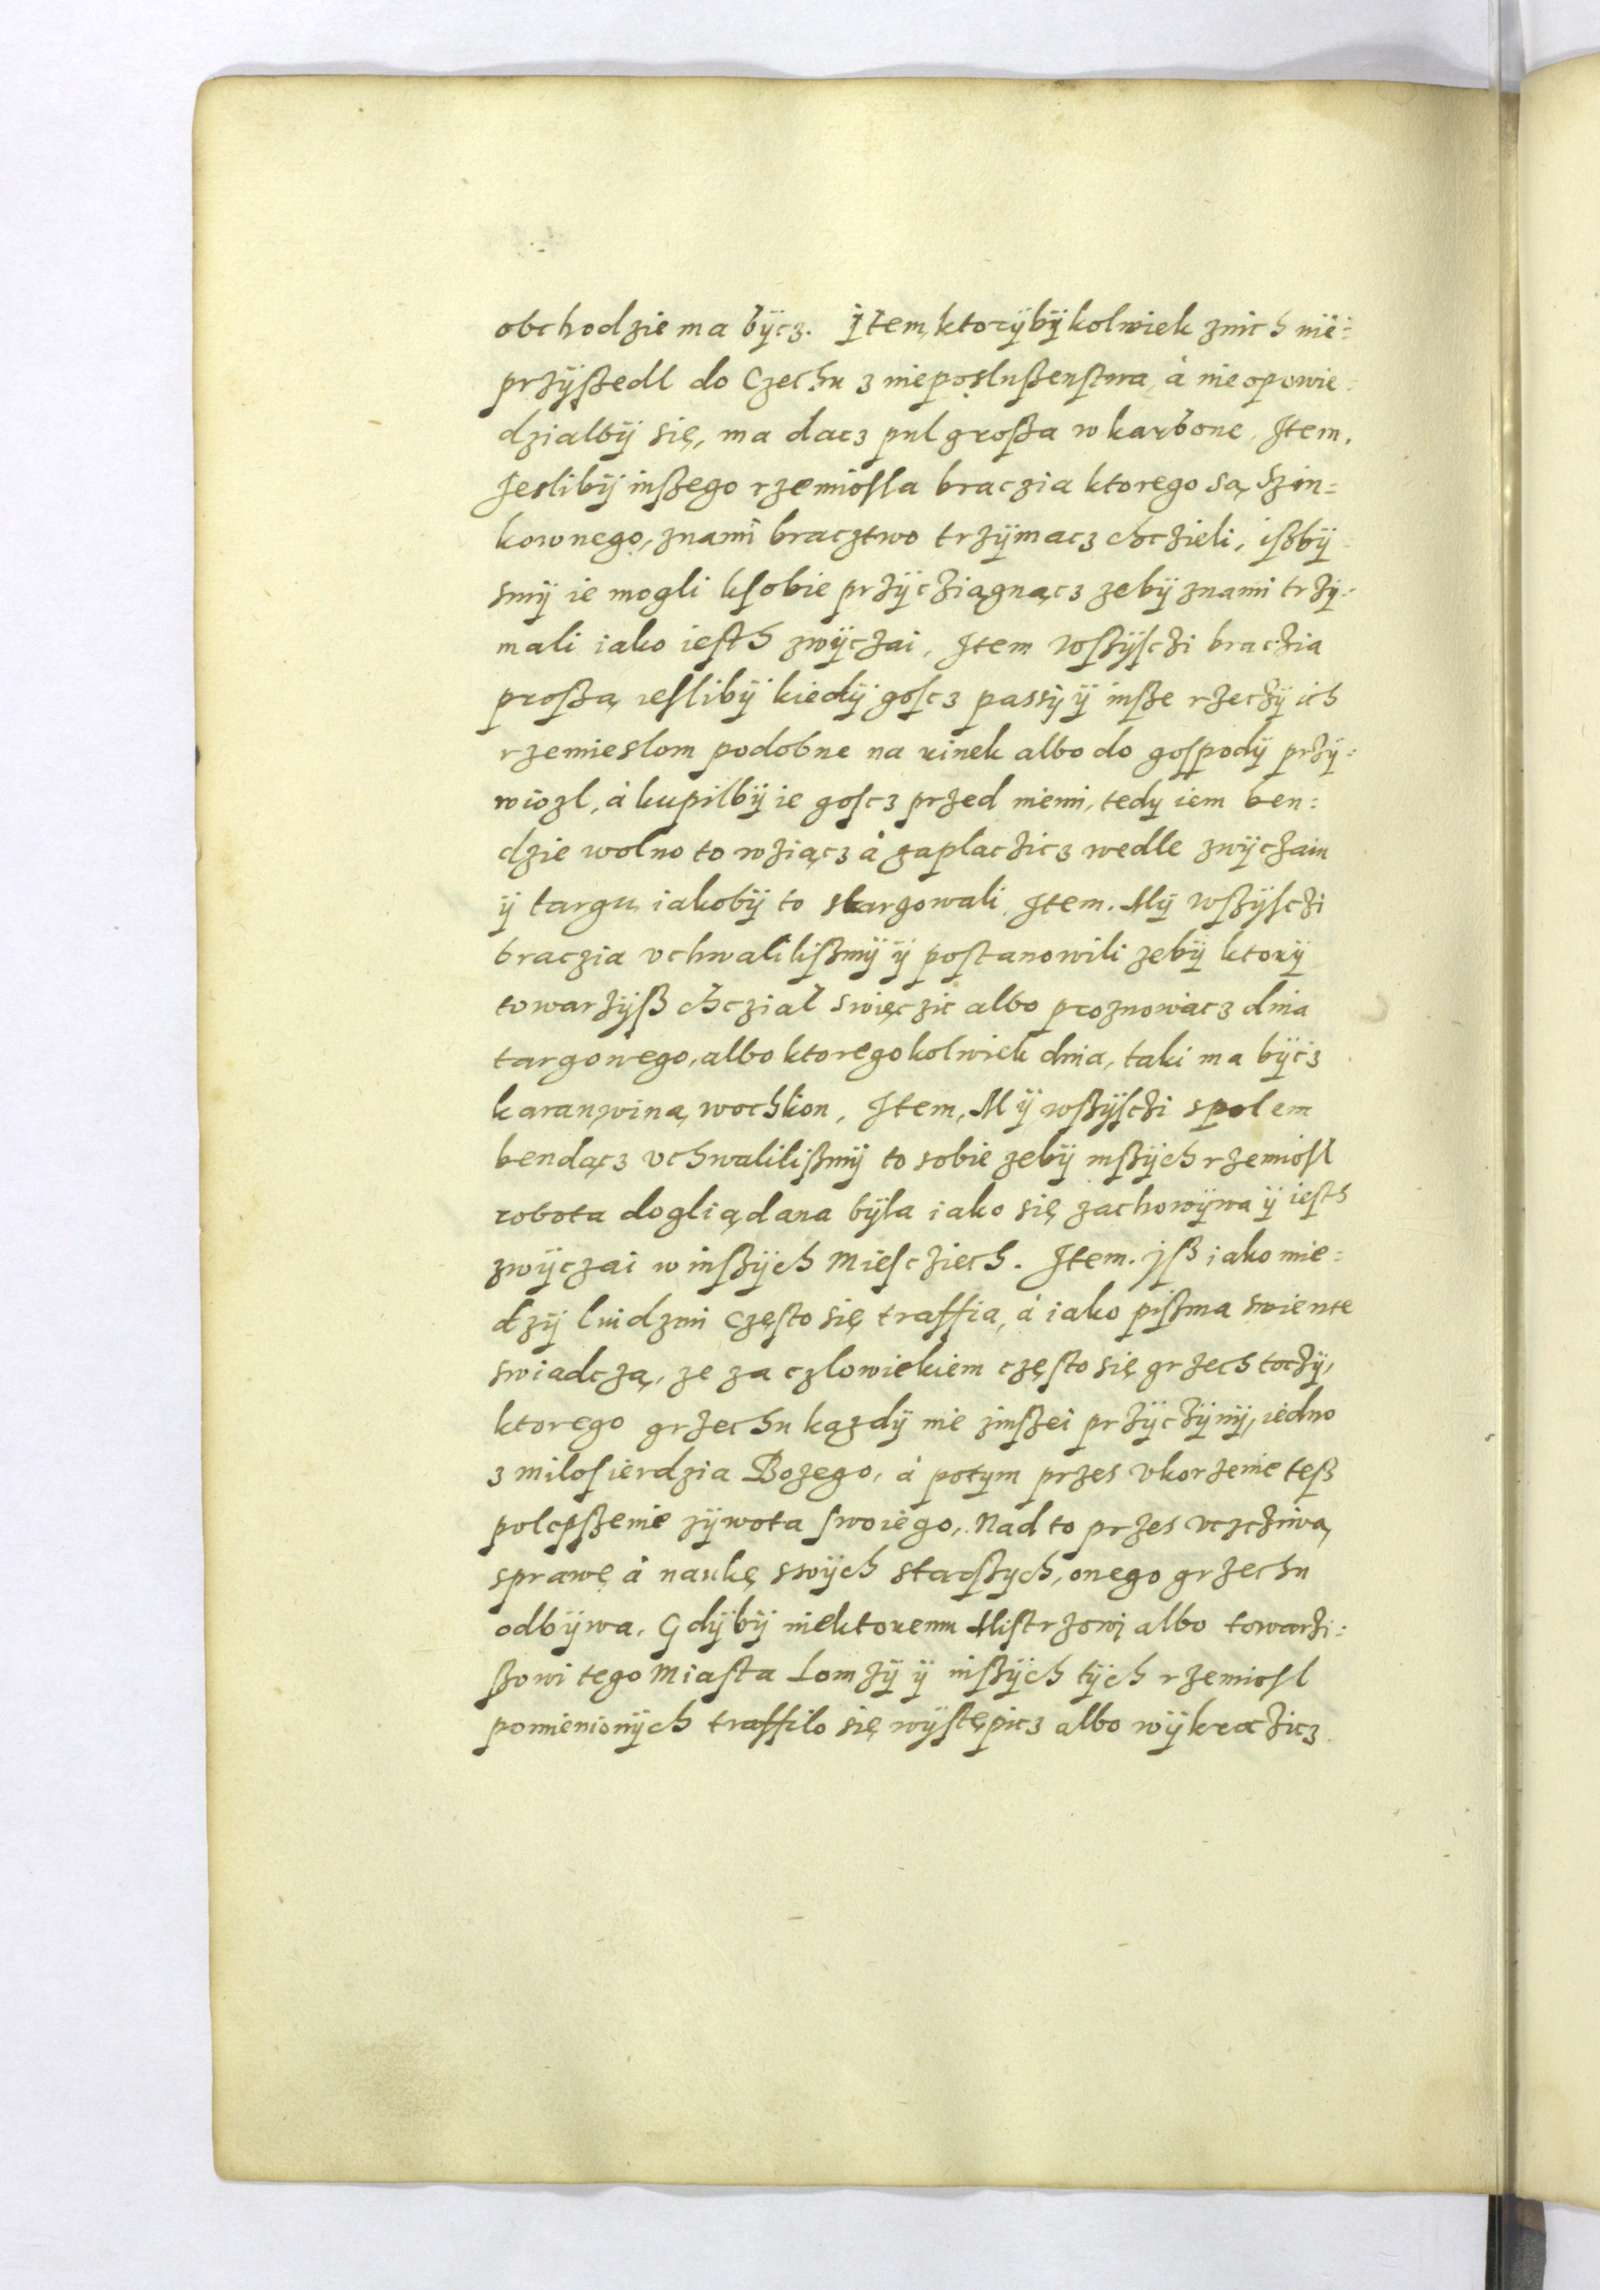 obchodzie ma bÿcz. Item, ktorÿbÿkolwiek znich nie=
przÿßedl do Czechu z nieposlußenstwa, à nieopowie=
dzialbÿ się, ma dacz pul großa w karbone. Item.
Jeslibÿ inßego rzemiosla braczia ktorego są Szin=
kownego, znami bracztwo trzÿmacz chczieli, ißbÿ
smÿ ie mogli ksobie przÿcziągnącz zebÿ znami trzÿ=
mali iako iesth zwÿczai. Item wßÿsczi braczia
proßą ieslibÿ kiedÿ goscz passÿ ÿ inße rzeczÿ ich
rzemieslom podobne na rinek albo do gospodÿ przÿ=
wiozl, à kupilbÿ ie goscz przed niemi, tedy iem ben=
dzie wolno to wziącz à zaplaczicz wedle zwÿczaiu
ÿ targu iakobÿ to stargowali. Item. Mÿ wßÿsczi
braczia vchwalilißmÿ ÿ postanowili zebÿ ktorÿ
towarzÿß chczial swięczic albo proznowacz dnia
targowego, albo ktoregokolwiek dnia, taki ma bÿcz
karan winą wochkon, Item, Mÿ wßÿsczi spolem
bendącz vchwalilißmÿ to sobie zebÿ inßÿch rzemiosl
robota dogliądana bÿla iako się zachowÿwa ÿ iesth
zwÿczai w inßÿch Miescziech. Item. jß iako mie=
dzÿ luidzmi Często się traffia, à iako pißma swiente
swiadczą, ze za czlowiekiem często się grzech toczÿ,
ktorego grzechu kązdÿ nie zinßei przÿczÿnÿ, iedno
z milosierdzia Bozego, à potym przes vkorzenie teß
polepßenie zÿwota swoiego, Nad to przes vczcziwą
sprawę à naukę swÿch starßych, onego grzechu
odbÿwa. Gdÿbÿ niektoremu Mistrzowi albo towarzi=
ßowi tego Miasta Lomzÿ ÿ inßÿch tÿch rzemiosl
pomienionÿch traffilo się wÿstępicz albo wÿkroczicz